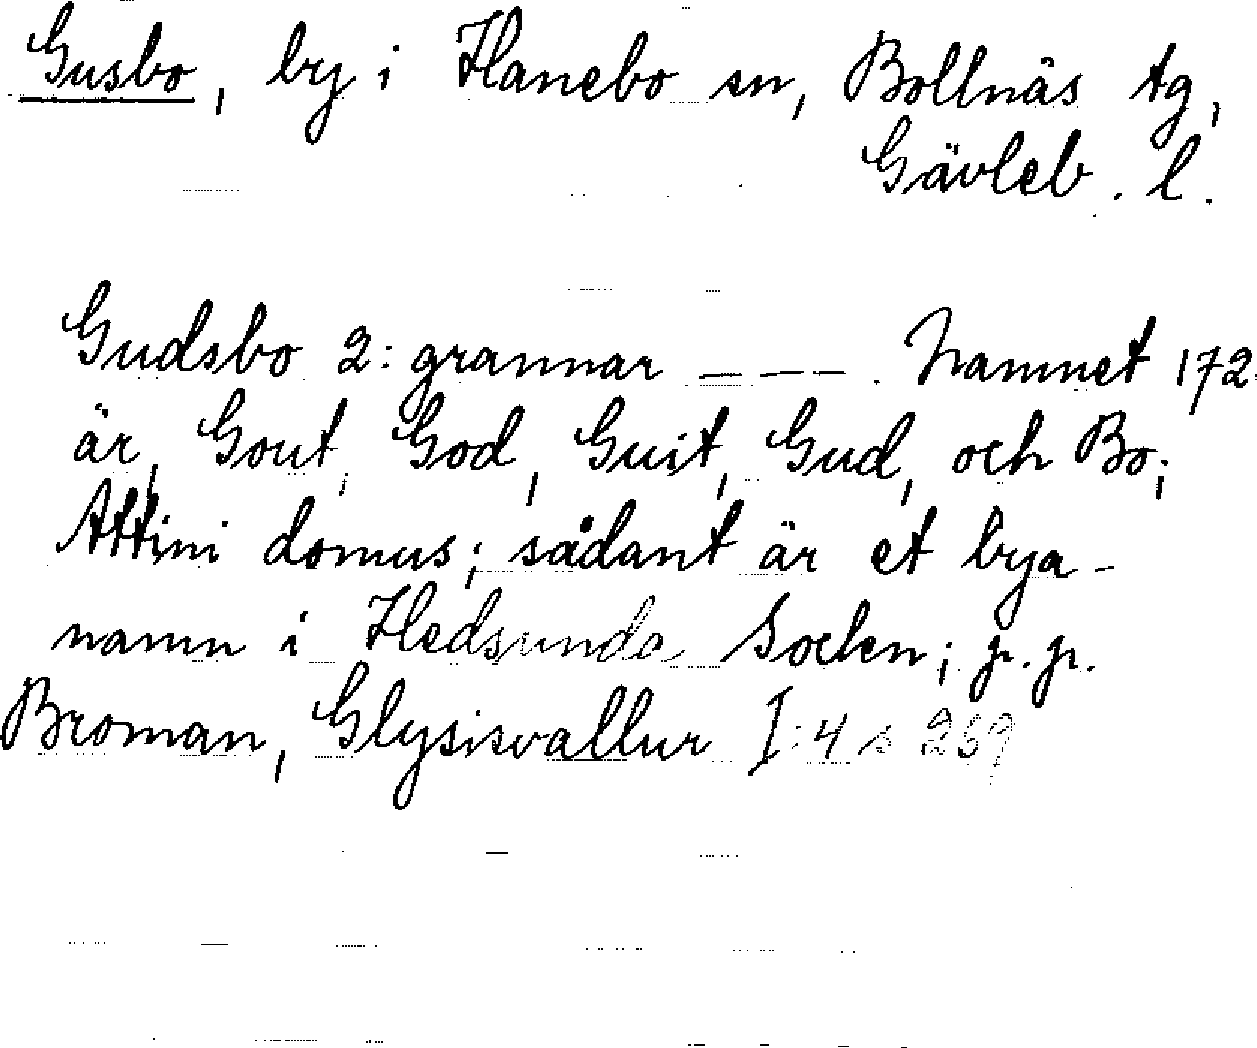 Gusbo, by i Hanebo sn, Bollnäs tg,
Gävleb. l.
Gudsbo 2: grannar _ _ _ _. Namnet 172
är, Gout, God, Guit, Gud, och Bo;
Attini domus; sådant är et bya-
namn i Hedsunda Socken; p. p.
Broman, Glysisvallur I:4 s 259